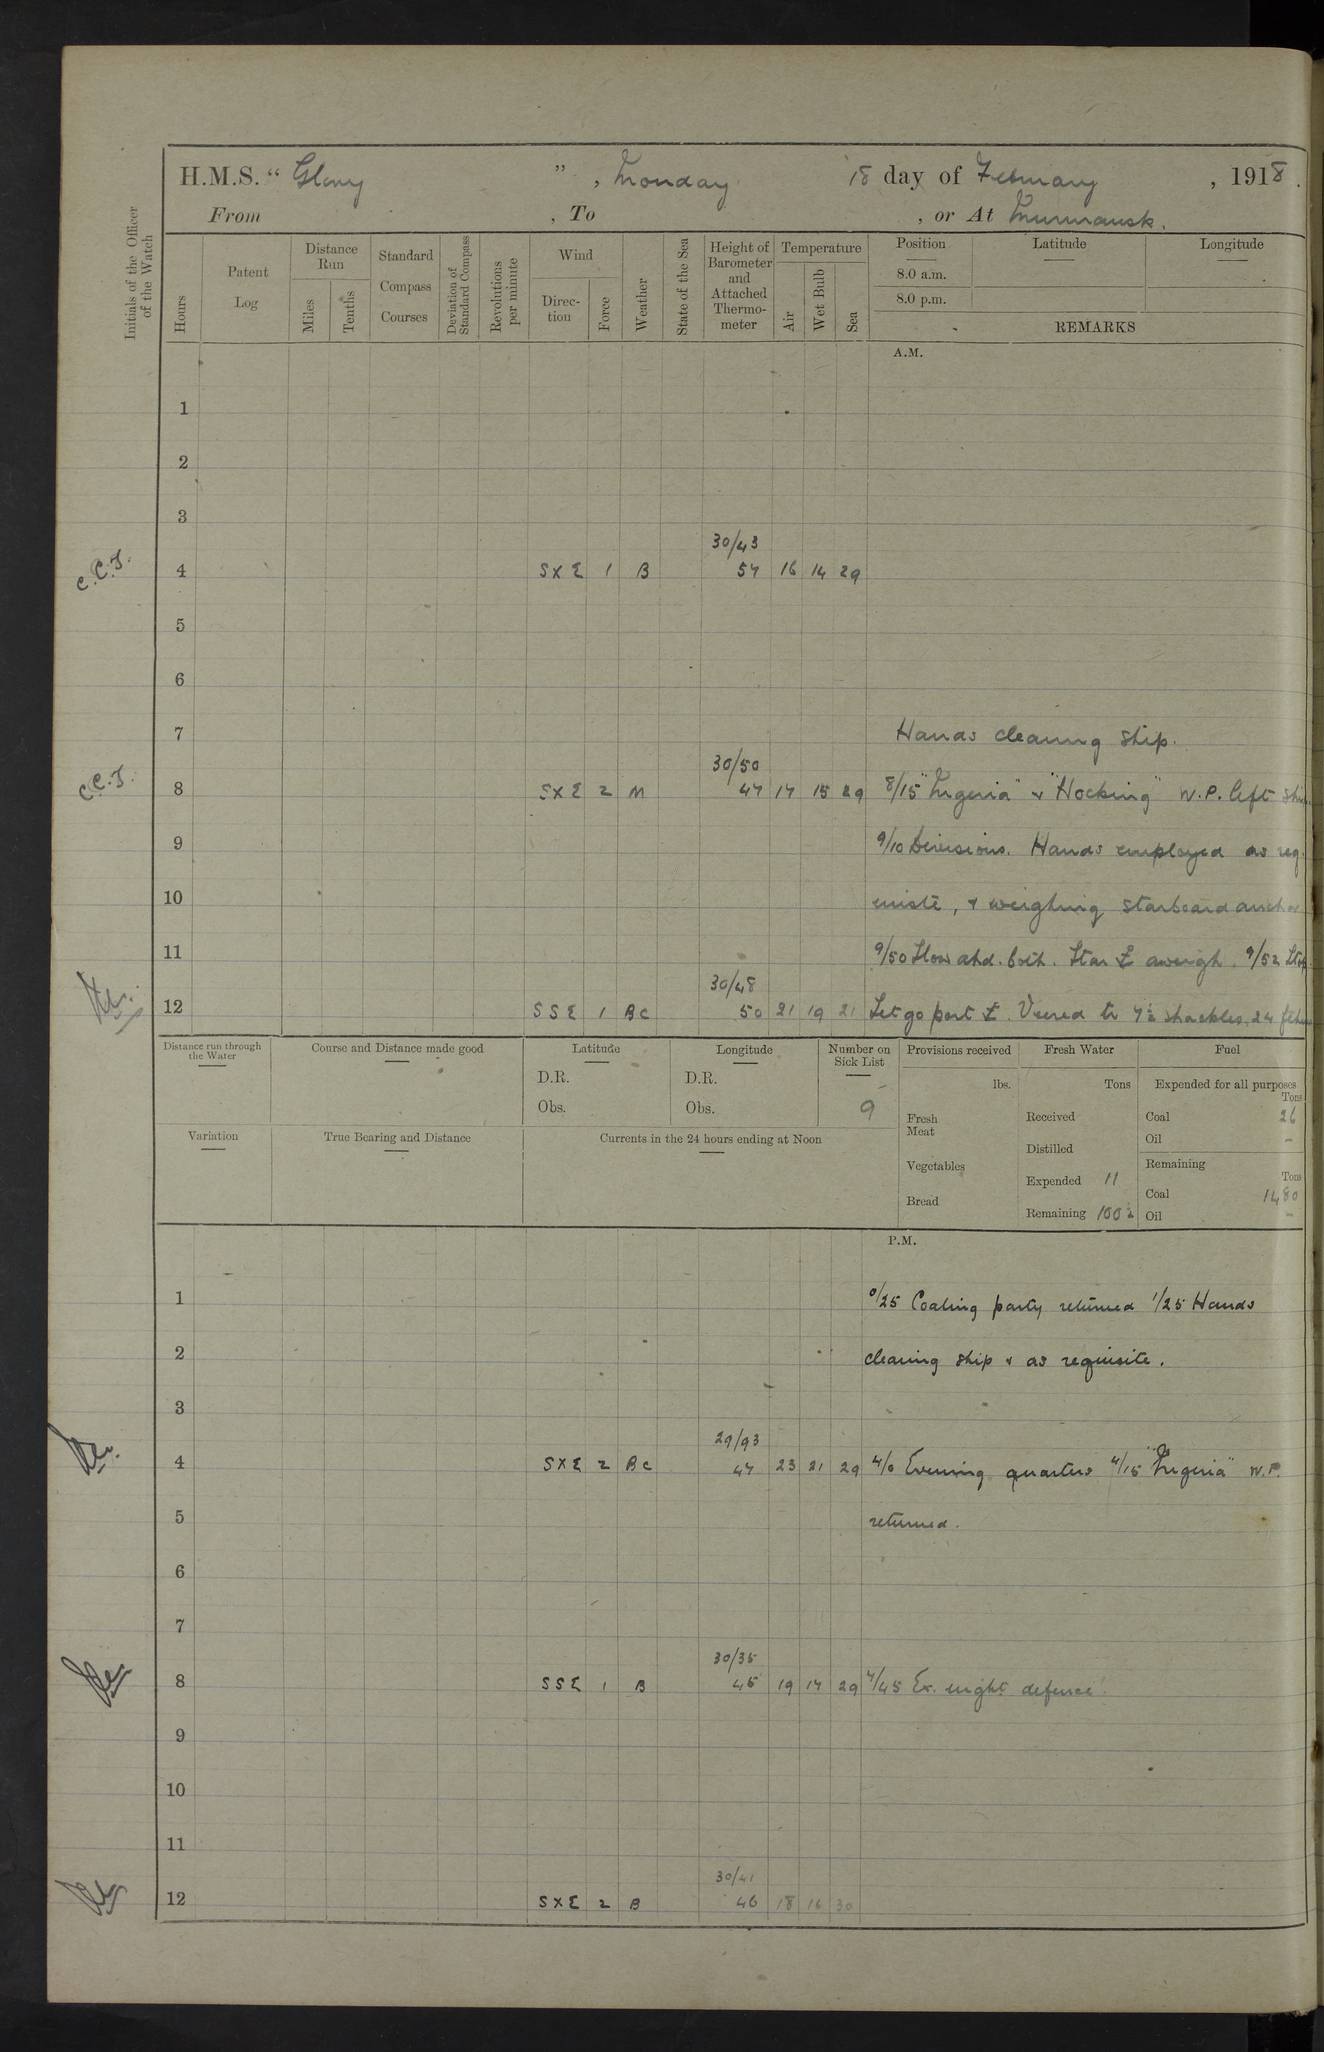 H.M.S. " Glory ", Monday 18 day of February, 1918.
From , To , or At Murmansk.
Initials of the Officer of the Watch
Hours
Patent Log
Distance Run
Miles
Tenths
Standard Compass Courses
Deviation of Standard Compass
Revolutions per minute
Wind
Direc-tion
Force
Weather
State of the Sea
Height of Barometer and Attached Thermo-meter
Temperature
Air
Wet Bulb
Sea
Position
Latitude
Longitude
8.0 a.m.
8.0 p.m.
REMARKS
A.M.
1
2
3
30/43
C.C.T. 4 SXE 1 B 57 16 14 29
5
6
7 Hands cleaning ship.
30/50
C.C.T. 8 SXE 2 M 47 17 15 29 8/15 & "Hocking" W.P. left ship.
9 9/10 Divisions. Hands employed as req-
10 uisite, & weighing starboard anchor
11 9/50 Slow ahd. both. Star ⚓ aweigh. 9/52 Stop
30/48
12 SSE 1 BC 50 21 19 21 Let go port ⚓. Veered to 7½ shackles, 24 fthms
Distance run through the Water
Course and Distance made good
Latitude
D.R.
Obs.
Longitude
D.R.
Obs.
Number on Sick List
9
Provisions received
lbs.
Fresh Meat
Vegetables
Bread
Fresh Water
Tons
Received
Distilled
Expended 11
Remaining 1002
Fuel
Expended for all purposes
Tons
Coal 26
Oil –
Remaining
Tons
Coal 1480
Oil –
Variation
True Bearing and Distance
Currents in the 24 hours ending at Noon
P.M.
1 0/25 Coaling party returned 1/25 Hands
2 cleaning ship & as requisite.
3
29/93
4 SXE 2 BC 47 23 21 29 4/0 Evening quarters 4/15 W.P.
5 returned.
6
7
30/35
8 SSE 1 B 45 19 17 29 4/45 Ex. night defence.
9
10
11
30/41
12 SXE 2 B 46 18 16 30